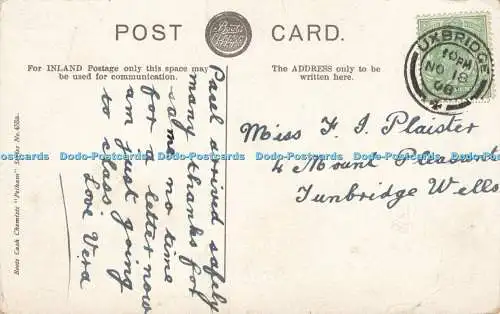 POST CARD.
For INLAND Postage only this space may
be used for communication.
The ADDRESS only to be
written here.
UXBRIDGE
NO 18
06
Parcel arrived safely
many thanks for
same no time
for a letter now
am just going
to class.
Love Vera
Miss F. I. Plaister
4 Mount Pleasant
Tunbridge Wells
Boots Cash Chemists "Pelham" Series No.
Dodo-Postcards Dodo-Postcards Dodo-Postcards Dodo-Postcards